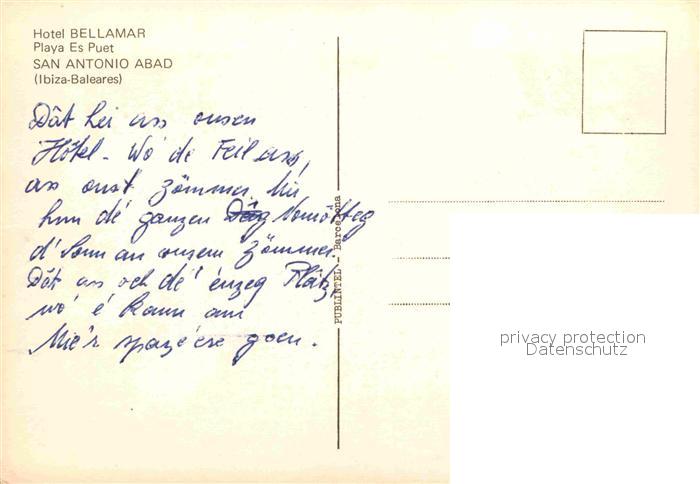 Hotel BELLAMAR
Playa Es Puet
SAN ANTONIO ABAD
(Ibiza-Baleares)
Dât hei ass onsen
Hôtel - Wó de Feil ass,
ass onst Zömmer. Mir
hun dé ganzen Dag Nomötteg
d' Sonn an onsem Zömmer.
Dât ass och dé énzeg Plâtz
wó é kann am
Mier spazéere goen.
PUBLINTEL - Barcelona
privacy protection
Datenschutz